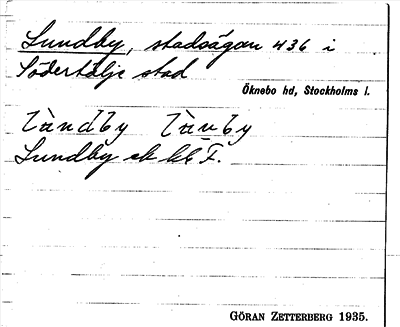 Lundby, stadsägan 436 i
Södertälje stad
Öknebo hd, Stockholms l.
lùndby lùnby
Lundby ek bl F.
GÖRAN ZETTERBERG 1935.